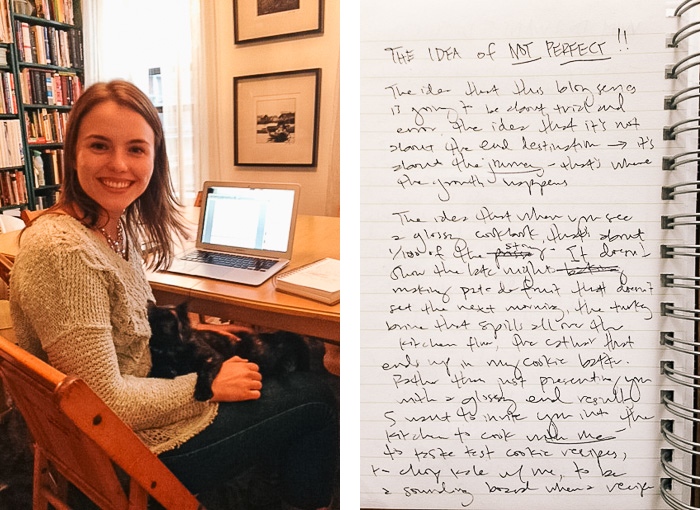 THE IDEA of NOT PERFECT !!
The idea that this blog series
is going to be about trial and
error, the idea that it's not
about the end destination → it's
about the journey - that's where
the growth happens
The idea that when you see
a glossy cookbook, that's about
1/100 of the story - It doesn't
show the late night
making pate de fruit that doesn't
set the next morning, the turkey
brine that spills all over the
kitchen floor, the cat hair that
ends up in my cookie batter.
Rather than just presenting you
with a glossy end result
I want to invite you into the
kitchen to cook with me -
to taste test cookie recipes,
to chop kale w/ me, to be
a sounding board when a recipe